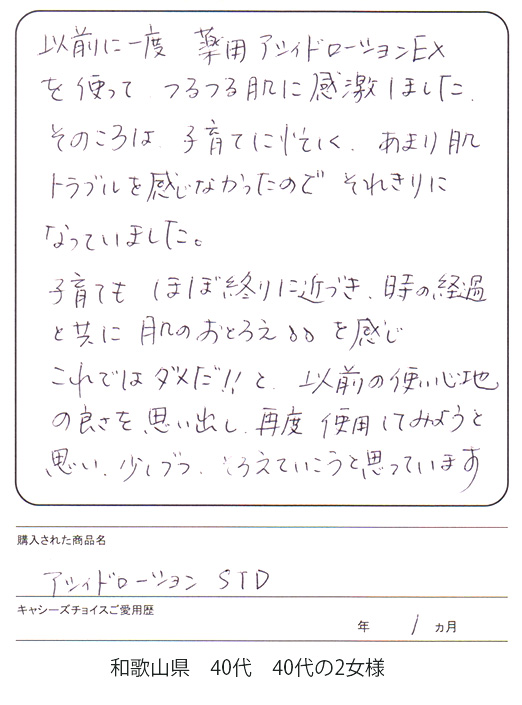 以前に一度 薬用アシィドローションEX
を使って つるつる肌に感激しました.
そのころは 子育てに忙しく. あまり肌
トラブルを感じなかったので それきりに
なっていました。
子育ても ほぼ終りに近づき、時の経過
と共に 肌のおとろえ を感じ
これではダメだ!! と、以前の使い心地
の良さを 思い出し、再度使用してみようと
思い、少しづつ、そろえていこうと思っています
購入された商品名
アシィドローション STD
キャシーズチョイスご愛用歴
年 1 ヵ月
和歌山県 40代 40代の2女様